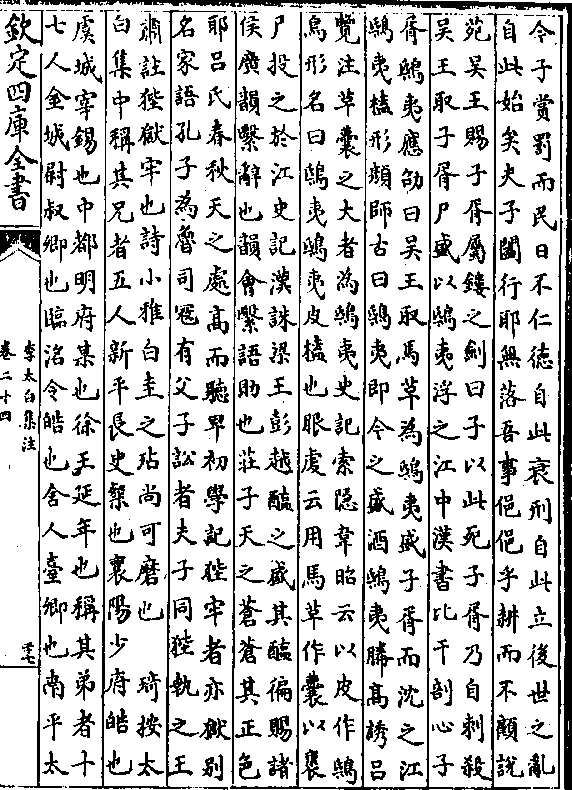 今子賞罰而民日不仁德自此衰刑自此立後世之亂
自此始矣夫子闔行耶無落吾事俋俋乎耕而不顧說
苑吳王賜子胥屬鏤之劍曰子以此死子胥乃自刺殺
吳王取子胥尸盛以鴟夷浮之江中漢書比干剖心子
胥鴟夷應劭曰吳王取馬革為鴟夷盛子胥而沈之江
鴟夷榼形顏師古曰鴟夷即今之盛酒鴟夷勝髙誘吕
覽注革囊之大者為鴟夷史記索隠韋昭云以皮作鴟
鳥形名曰鴟夷鴟夷皮榼也服䖍云用馬革作囊以裹
尸投之於江史記漢誅梁王彭越醢之盛其醢徧賜諸
侯廣韻繄辭也韻會繄語助也莊子天之蒼蒼其正色
耶吕氏春秋天之處髙而聽卑初學記狴牢者亦獄别
名家語孔子為魯司冦有父子訟者夫子同狴執之王
肅註狴獄牢也詩小雅白圭之玷尚可磨也 琦按太
白集中稱其兄者五人新平長史粲也襄陽少府皓也
虞城宰錫也中都明府某也徐王延年也稱其弟者十
七人金城尉叔卿也臨洺令皓也舍人臺卿也南平太
欽定四庫全書
李太白集注
卷二十四